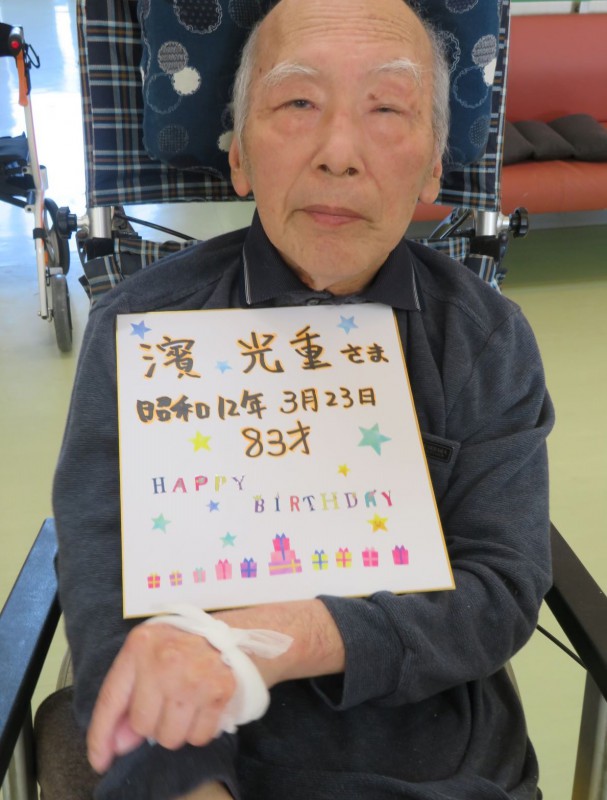 濱 光重さま
昭和12年 3月23日
83才
HAPPY
BIRTHDAY